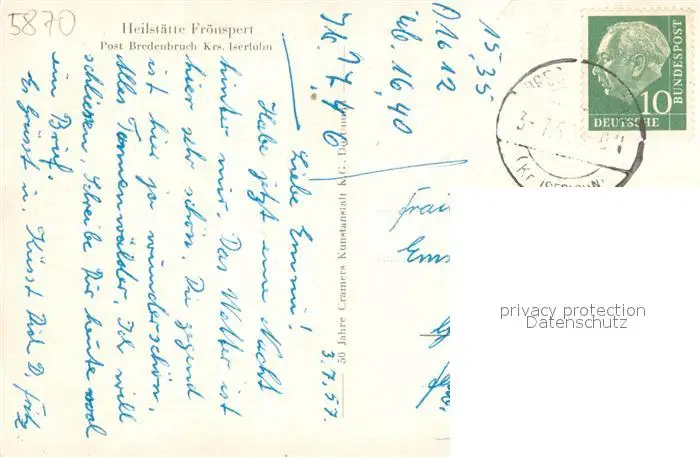 5870
Heilstätte Frönspert
Post Bredenbruch Krs. Iserlohn
3.7.57.
Liebe Emmi!
Habe jetzt eine Nacht
hinter mir. Das Wetter ist
hier sehr schön. Die Gegend
ist hier ja wunderschön.
Alles Tannenwälder. Ich will
schliessen, schreibe Dir heute wohl
ein Brief.
Es Grüsst u. Küsst Dich D. Fritz
50 Jahre Cramers Kunstanstalt K.G., Dortmund
15,35
D 16 12
16,40
Frau
DEUTSCHE
BUNDESPOST
10
(KR. ISERLOHN)
privacy protection
Datenschutz